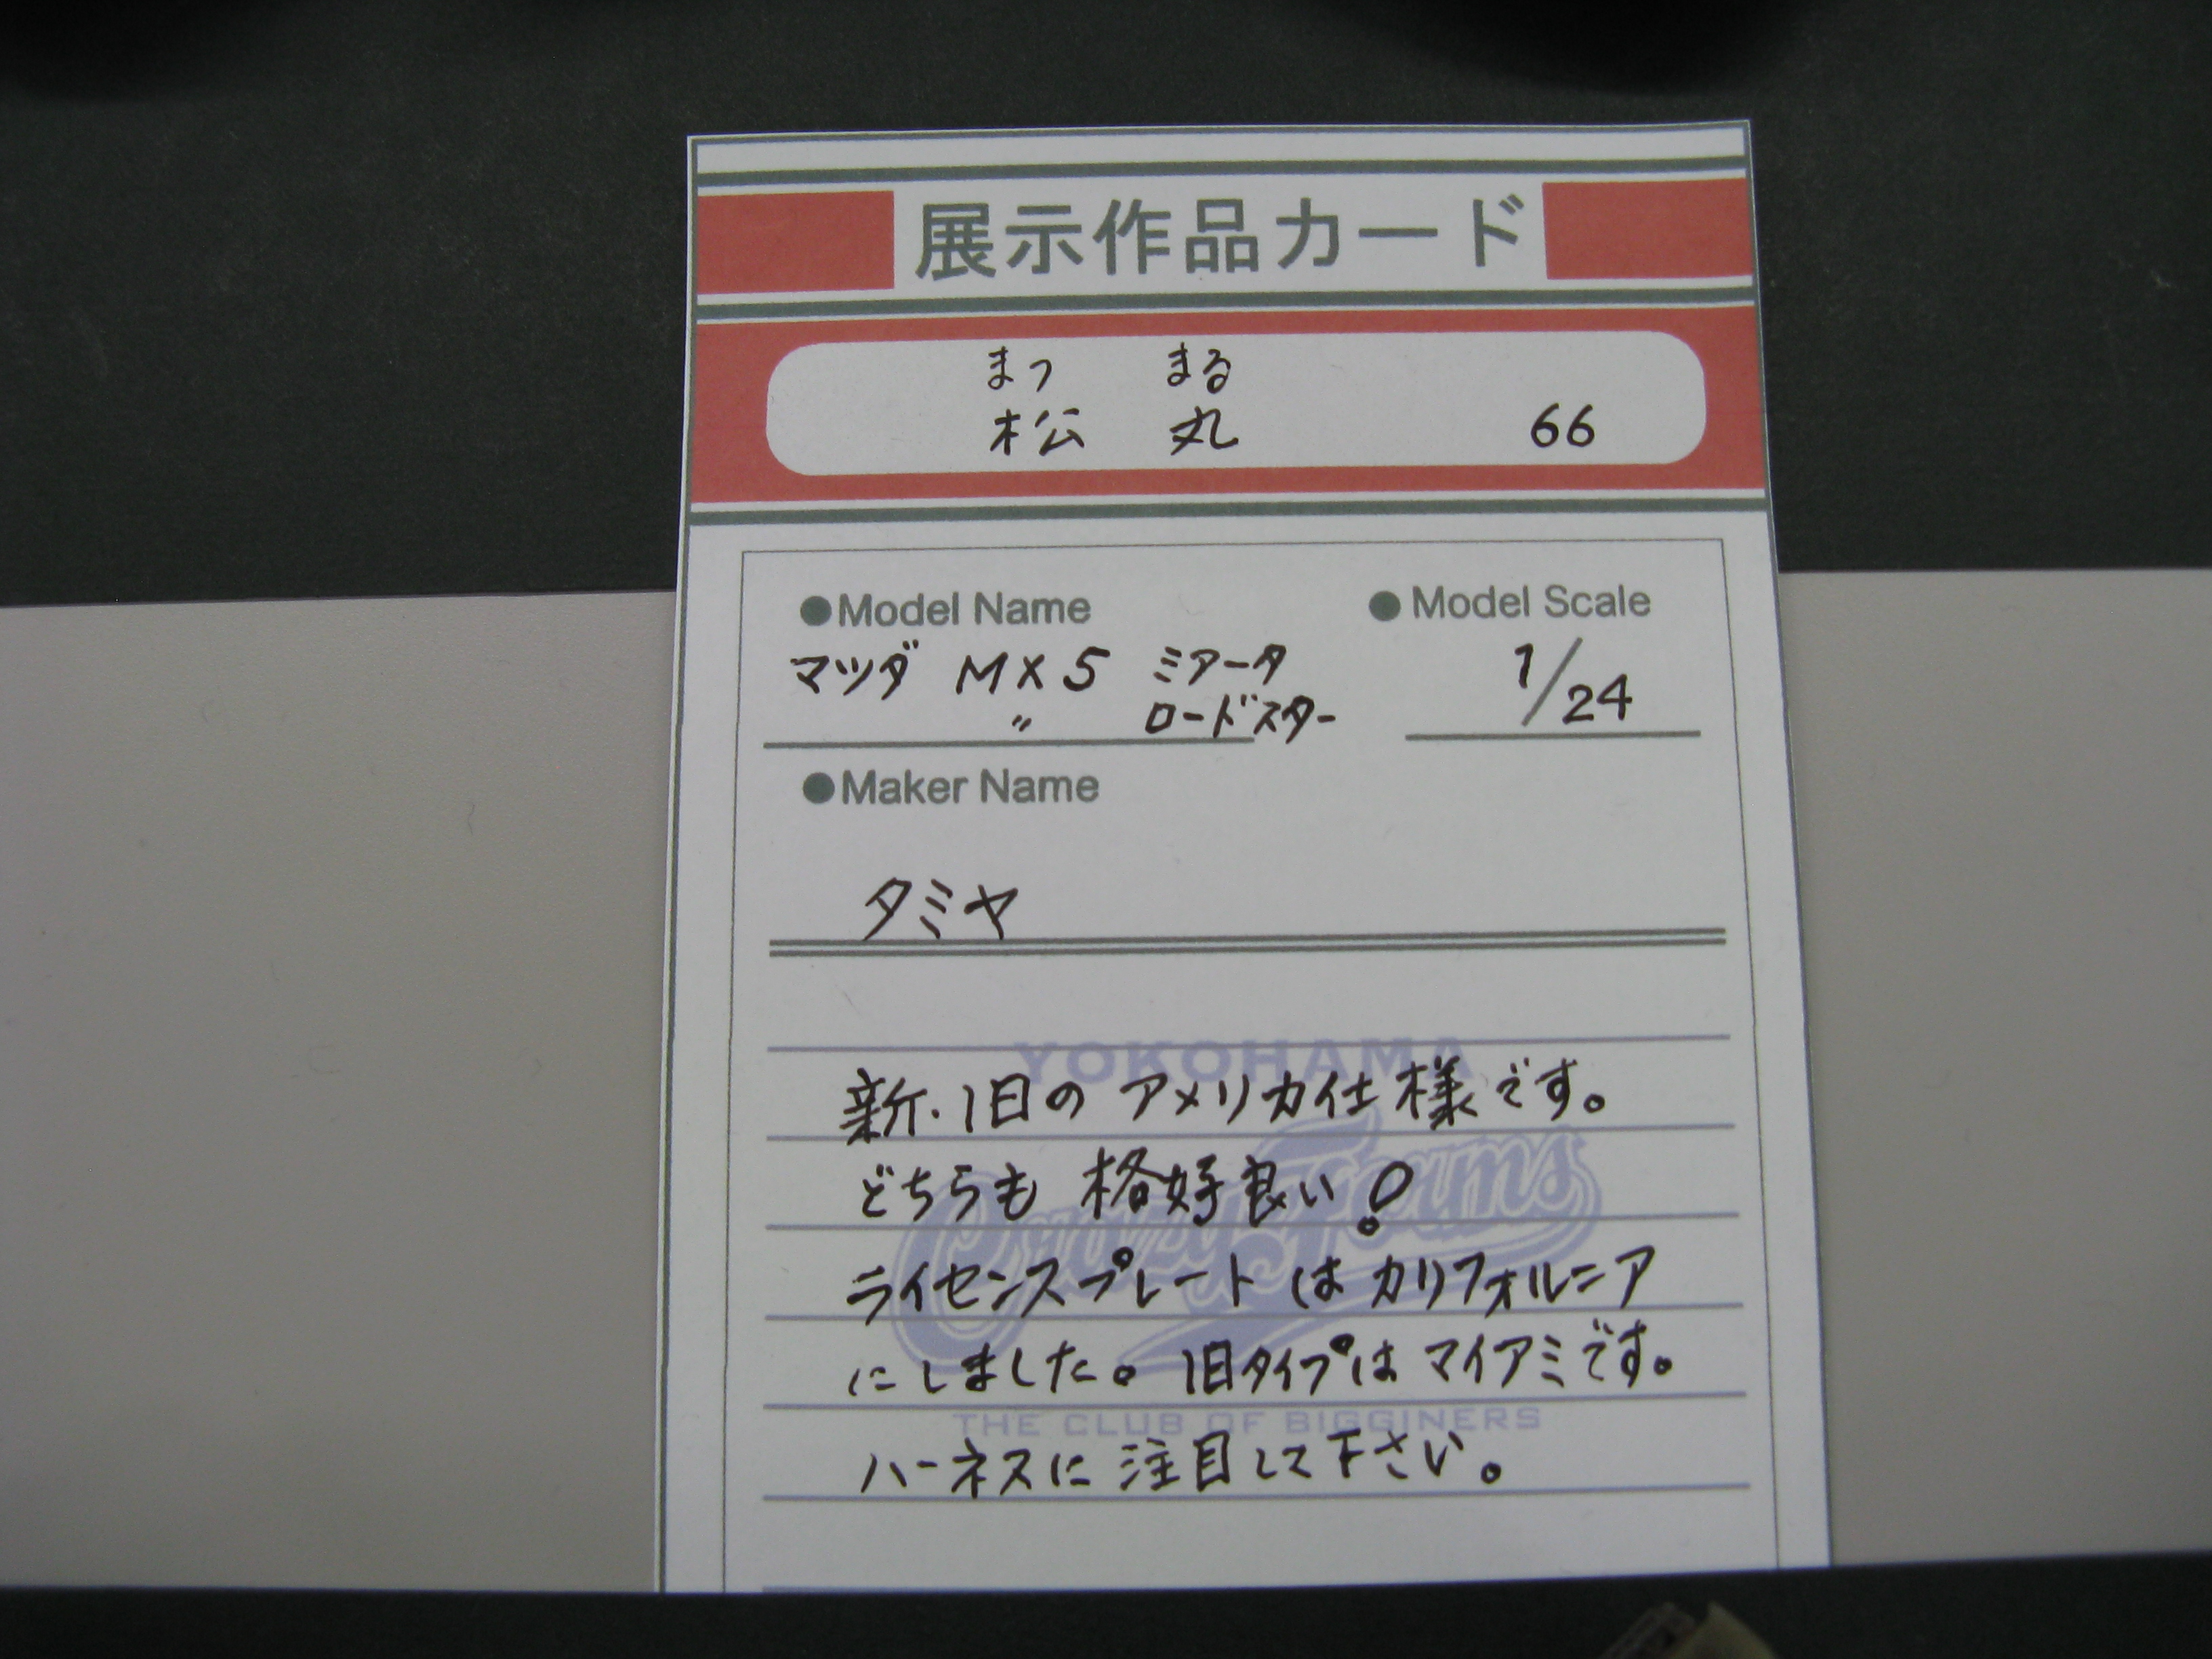 展示作品カード
まつ まる
松 丸 66
●Model Name ●Model Scale
マツダ MX5 ミアータ 1/24
〃 ロードスター
●Maker Name
タミヤ
YOKOHAMA
新・旧の アメリカ仕様です。
どちらも 格好良い!
Crazy Foams
ライセンスプレートは カリフォルニア
にしました。旧タイプは マイアミです。
THE CLUB OF BIGGINERS
ハーネスに 注目して下さい。